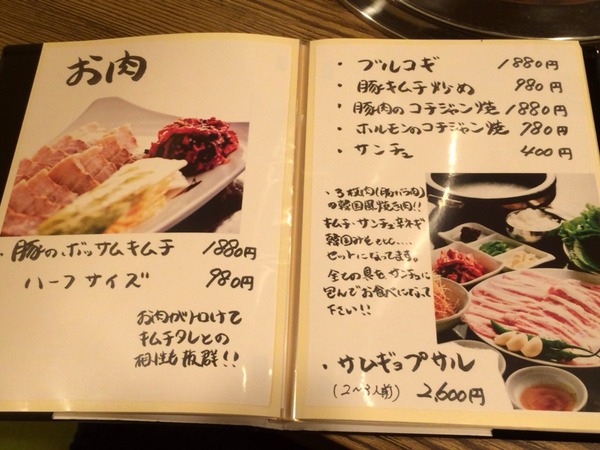 お肉
・豚のボッサムキムチ 1880円
ハーフサイズ 980円
お肉が
キムチタレとの
相性も抜群!!
・ブルコギ 1880円
・豚キムチ炒め 980円
・豚肉のコチジャン焼 1880円
・ホルモンのコチジャン焼 980円
・サンチュ 400円
・3枚肉(豚バラ肉)
の韓国風焼き肉!!
キムチ・サンチュ辛ネギ
韓国みそとじ....
セットになってます。
全ての具をサンチュに
包んでお食べになって
下さい!!
・サムギョプサル
(2〜3人前) 2,600円